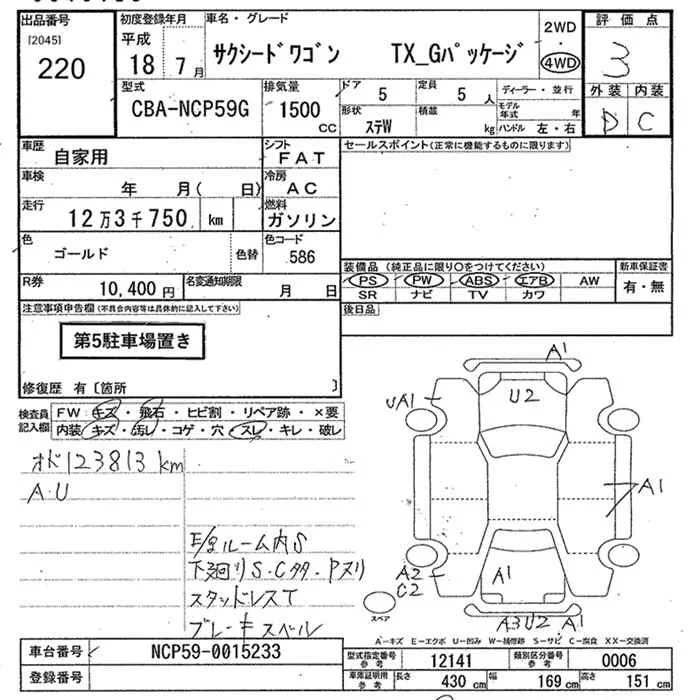 出品番号
[2045]
220
初度登録年月
平成
18 7 月
車名・グレード
サクシードワゴン TX_Gパッケージ
2WD
・
4WD
評価点
3
外装 内装
D C
型式
CBA-NCP59G
排気量
1500
cc
ドア
5
定員
5 人
形状
ステW
積載
kg
ディーラー・並行
モデル年式 年
ハンドル 左・右
車歴
自家用
シフト
FAT
車検
年 月( 日)
冷房
AC
走行
12万3千750 km
燃料
ガソリン
色
ゴールド
色替
色コード
586
R券
10,400 円
名変通知期限
月 日
セールスポイント(正常に機能するものに限ります)
装備品 (純正品に限り〇をつけてください)
PS PW ABS エアB AW
SR ナビ TV カワ
新車保証書
有・無
後日品
注意事項申告欄(不具合内容等は具体的に記入して下さい)
第5駐車場置き
修復歴 有〔箇所 〕
検査員記入欄
FW キズ・飛石・ヒビ割・リペア跡・×要
内装 キズ・汚レ・コゲ・穴・スレ・キレ・破レ
オド123813km
A.U
ルーム内S
下廻りS・Cタタ・Pヌリ
スタッドレスT
ブレーキスペル
A1
U2
UA1
A1
A2
C2
A1
A3U2 A1
スペア
A-キズ E-エクボ U-凹み W-補修跡 S-サビ C-腐食 XX-交換済
車台番号
NCP59-0015233
登録番号
型式指定番号
参考
12141
類別区分番号
参考
0006
車庫証明用
参考
長さ
430 cm
幅
169 cm
高さ
151 cm